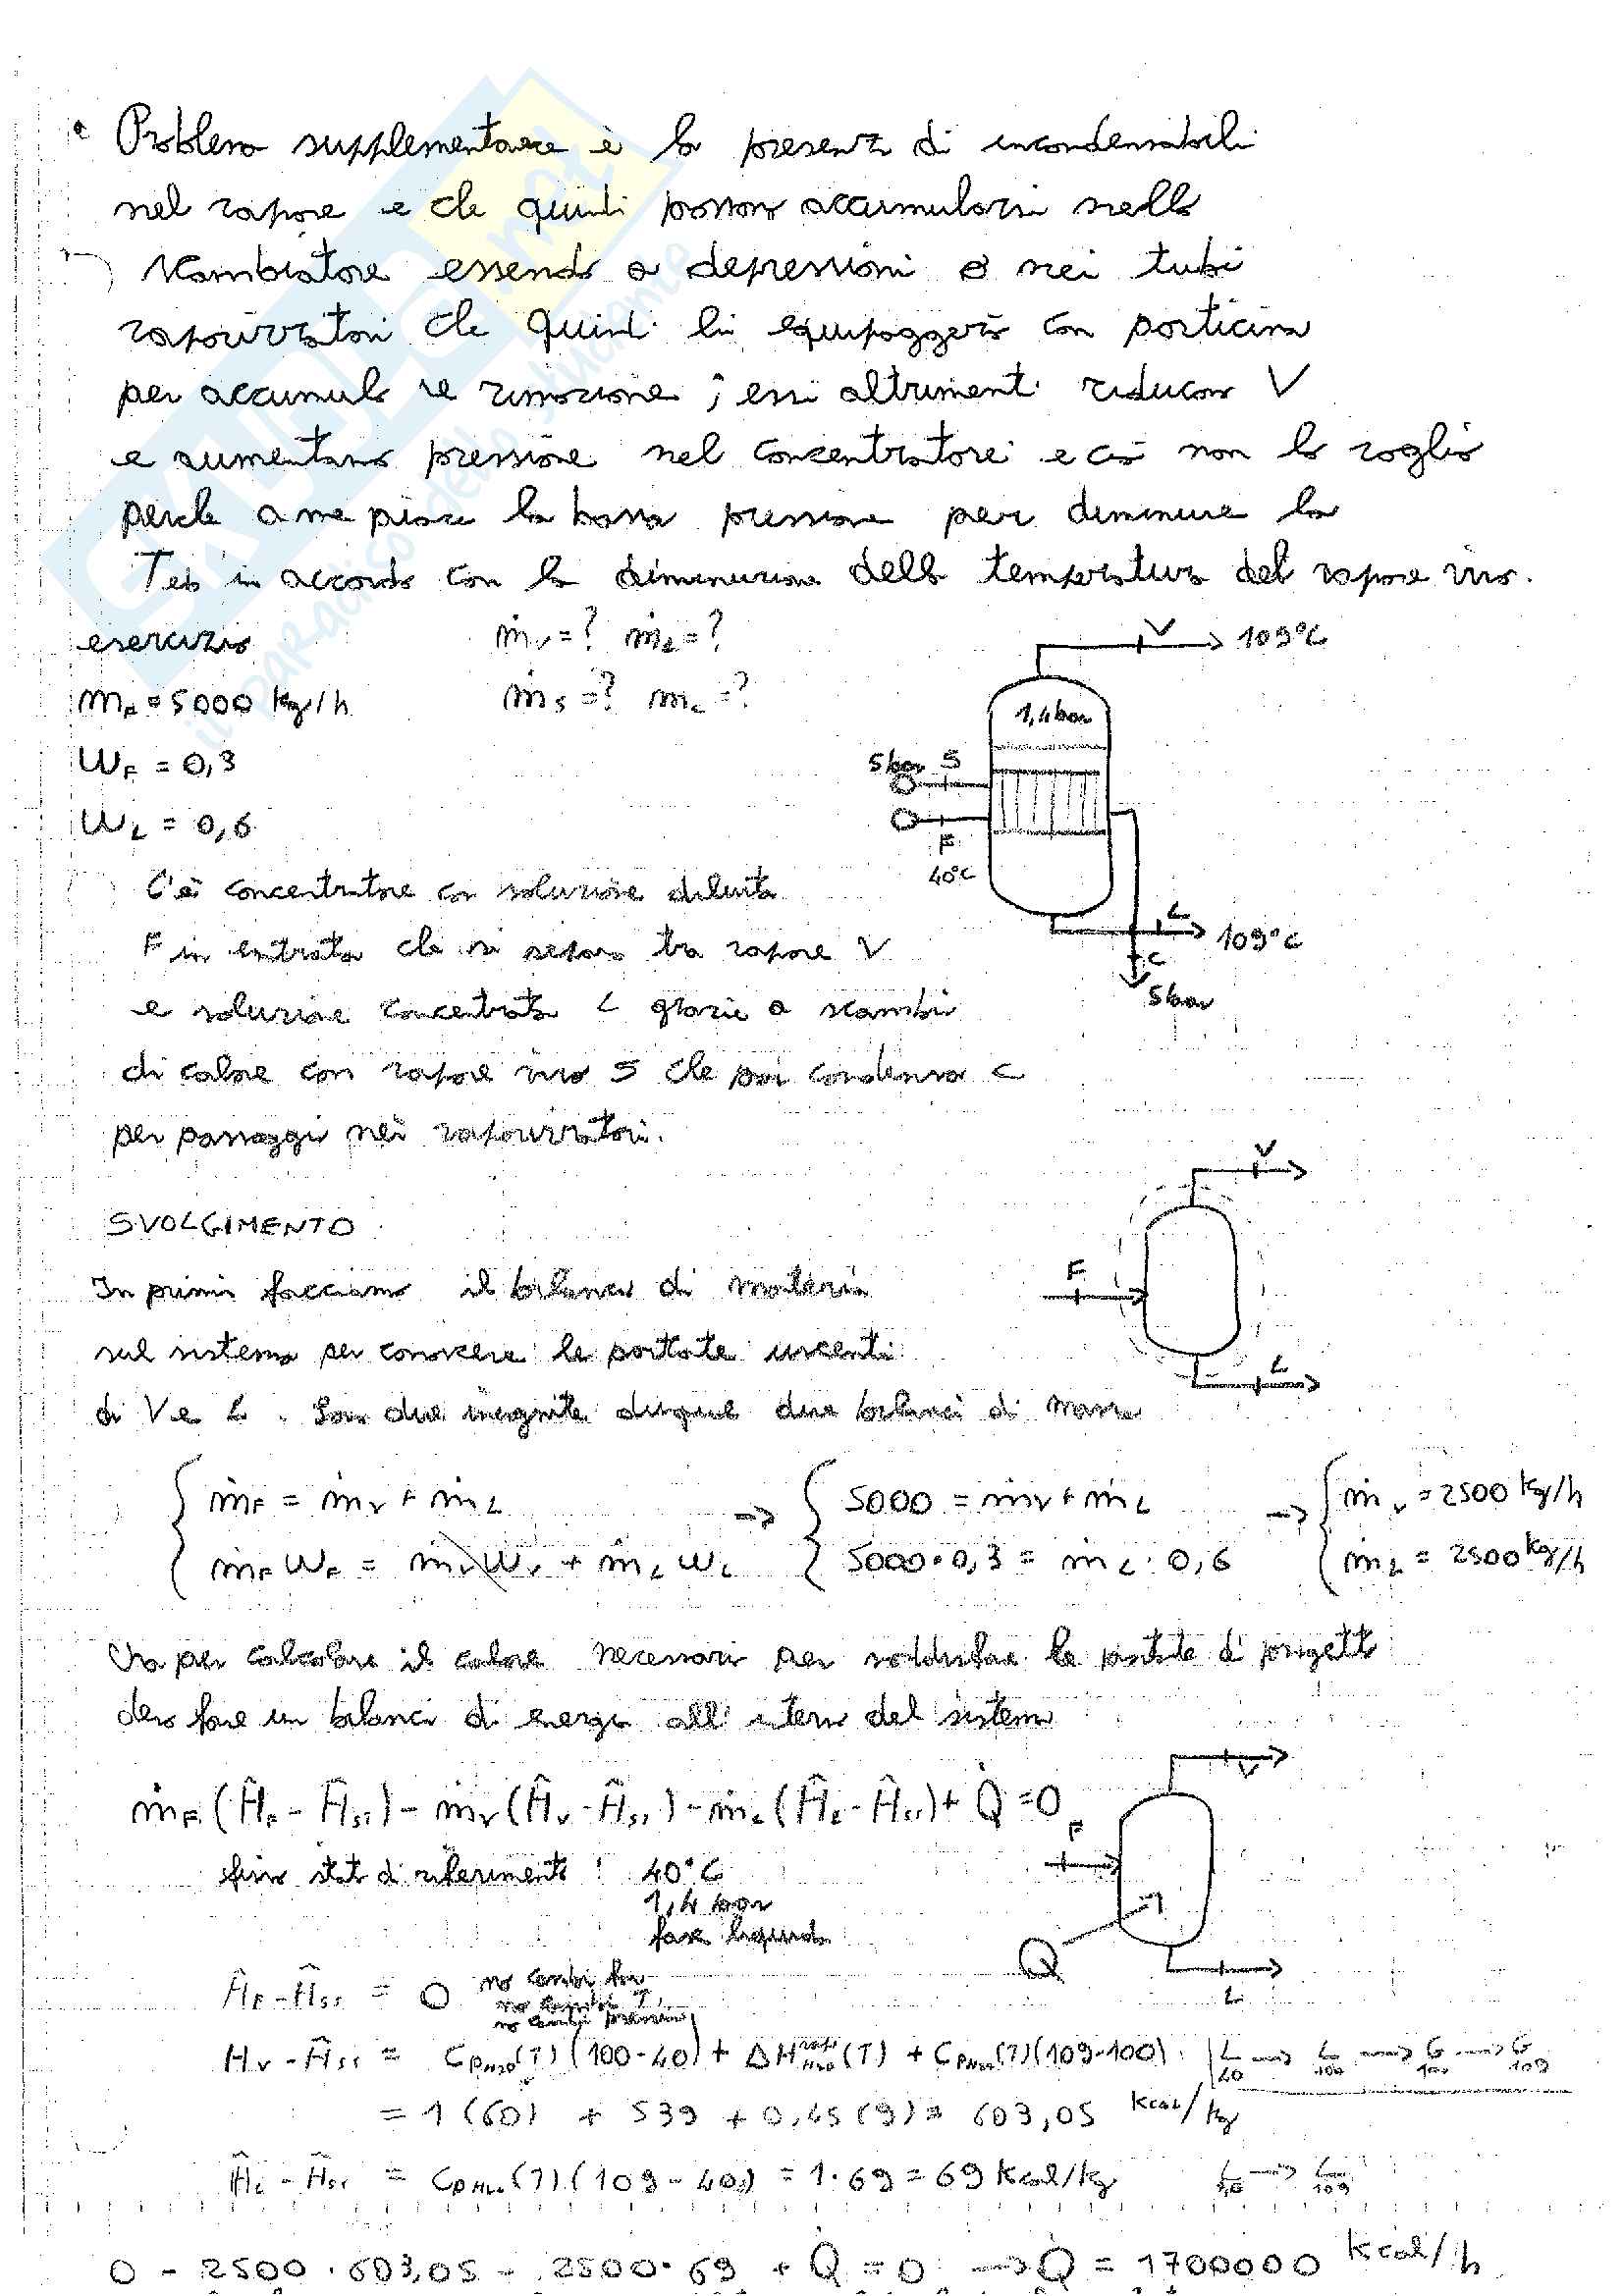 • Problema supplementare è la presenza di incondensabili
nel vapore e che quindi possono accumularsi nello
scambiatore essendo a depressioni e nei tubi
vaporizzatori che quindi li equipaggerò con porticina
per accumulo e rimozione ; essi altrimenti riducono V
e aumentano pressione nel concentratore e ciò non lo voglio
perche a me piace la bassa pressione per diminuire la
Teb in accordo con la diminuzione della temperatura del vapore vivo.
esercizio ṁV = ? ṁL = ?
V 109°C
mF = 5000 kg/h ṁS = ? mC = ?
1,4 bar
WF = 0,3
5 bar S
WL = 0,6
F
40°C
C'è concentratore con soluzione diluita
L 109°C
F in entrata che si separa tra vapore V
C
5 bar
e soluzione concentrata L grazie a scambi
di calore con vapore vivo S che poi condensa C
per passaggio nei vaporizzatori.
V
SVOLGIMENTO
F
In primis facciamo il bilancio di materia
sul sistema per conoscere le portate uscenti
L
di V e L . Sono due incognite dunque due bilanci di massa
{ ṁF = ṁV + ṁL → { 5000 = ṁV + ṁL → { ṁV = 2500 kg/h
{ ṁF WF = ṁV WV + ṁL WL { 5000 · 0,3 = ṁL · 0,6 { ṁL = 2500 kg/h
Ora per calcolare il calore necessario per soddisfare le portate di progetto
devo fare un bilancio di energia all'interno del sistema
V
ṁF (ĤF - Ĥss) - ṁV (ĤV - Ĥss) - ṁL (ĤL - Ĥss) + Q̇ = 0
F
stato di riferimento : 40°C
1,4 bar
fase liquida
Q
L
ĤF - Ĥss = 0 no cambi fase
no cambi T
no cambi pressione
HV - Ĥss = CpH2O(T) (100-40) + ΔH vap H2O (T) + CpH2O(T) (109-100) L 40 → L 100 → G 100 → G 109
= 1 (60) + 539 + 0,45 (9) = 603,05 kcal/kg
ĤL - Ĥss = CpH2O(T) (109 - 40) = 1 · 69 = 69 kcal/kg L 40 → L 109
0 - 2500 · 603,05 - 2500 · 69 + Q̇ = 0 → Q̇ = 1700000 kcal/h